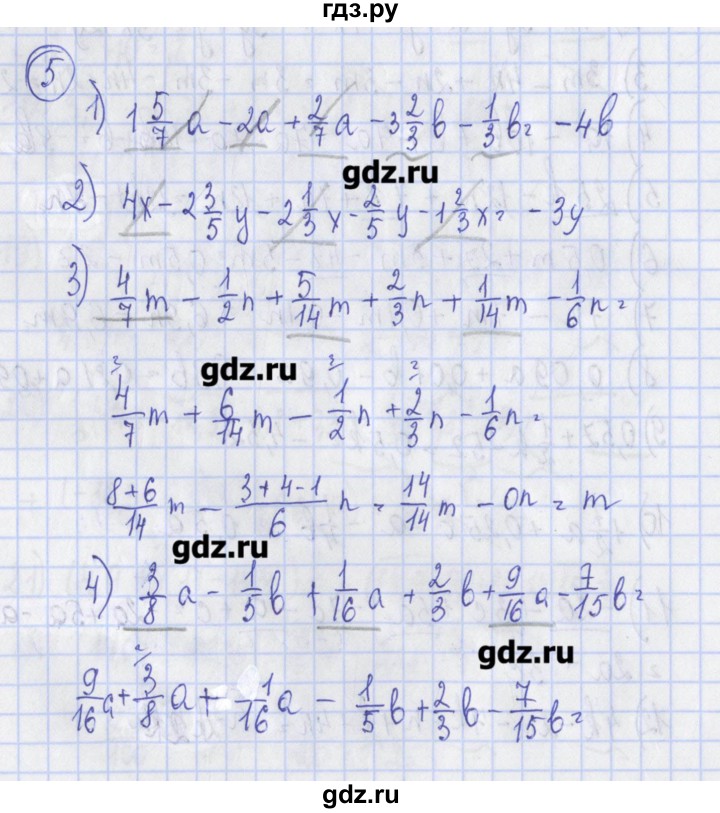 гдз.ру
5
1) 1 5/7 a - 2a + 2/7 a - 3 2/3 b - 1/3 b = - 4b
gdz.ru
2) 4x - 2 3/5 y - 2 1/3 x - 2/5 y - 1 2/3 x = - 3y
3) 4/7 m - 1/2 n + 5/14 m + 2/3 n + 1/14 m - 1/6 n =
gdz.ru
= 4/7 m + 6/14 m - 1/2 n + 2/3 n - 1/6 n =
8+6/14 m - 3+4-1/6 n = 14/14 m - 0n = m
gdz.ru
4) 3/8 a - 1/5 b + 1/16 a + 2/3 b + 9/16 a - 7/15 b =
gdz.ru
9/16 a + 3/8 a + 1/16 a - 1/5 b + 2/3 b - 7/15 b =
gdz.ru